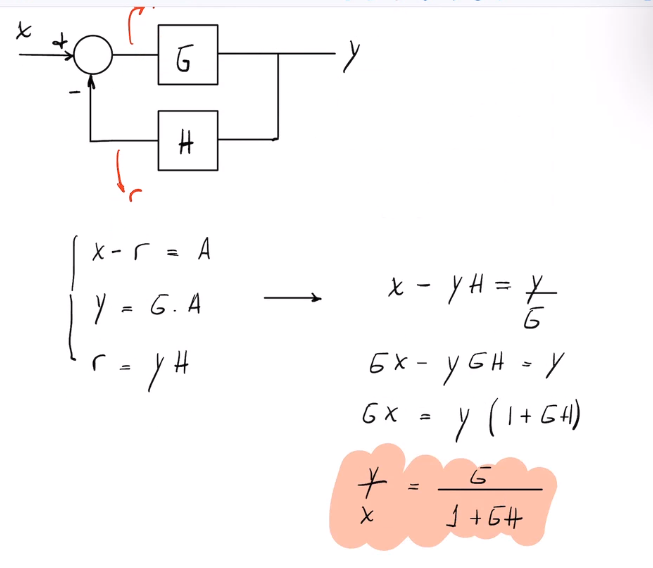 x + G y
-
H
r
x - r = A
y = G . A
r = y H
x - yH = y/G
Gx - yGH = y
Gx = y (1 + GH)
y/x = G/(1 + GH)